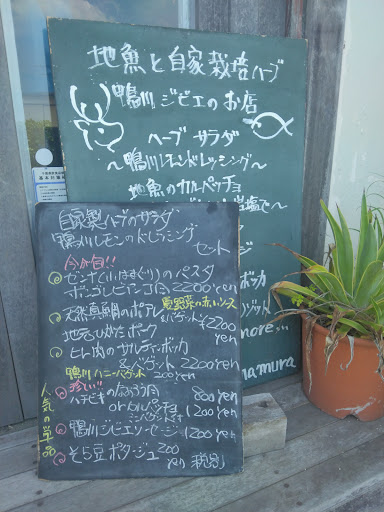 地魚と自家栽培ハーブ
鴨川ジビエのお店
ハーブ サラダ
〜鴨川レモンドレッシング〜
地魚のカルパッチョ
塩で〜
ボッカ
ゾット
more...
namura
自家製ハーブのサラダ
鴨川レモンのドレッシング
セット
今が旬!!
ゼンナ(小はまぐり)のパスタ
ボンゴレビアンコ 2200yen
天然真鯛のポアレ 夏野菜の赤いソース
&バゲット ¥2200
yen
地元ひがた ポーク
ヒレ肉のサルティンボッカ
&バゲット 2200yen
鴨川ハニーバゲット 200yen
人気の単品
珍しい!!
ハチビキのなめろう 800yen
orカルパッチョ 1200yen
ミニバゲット付き
鴨川ジビエソーセージ 1200yen
そら豆ポタージュ 200
yen 税別